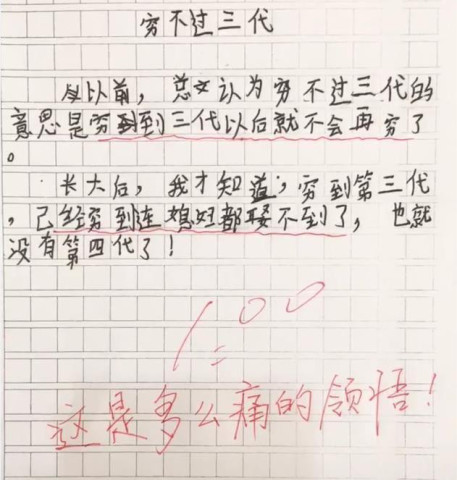 穷不过三代
以前，总文认为穷不过三代的
意思是穷到到三代以后就不会再穷了
。
长大后，我才知道；穷到第三代
，已经穷到连媳妇都娶不到了，也就
没有第四代了！
100
这是多么痛的领悟！